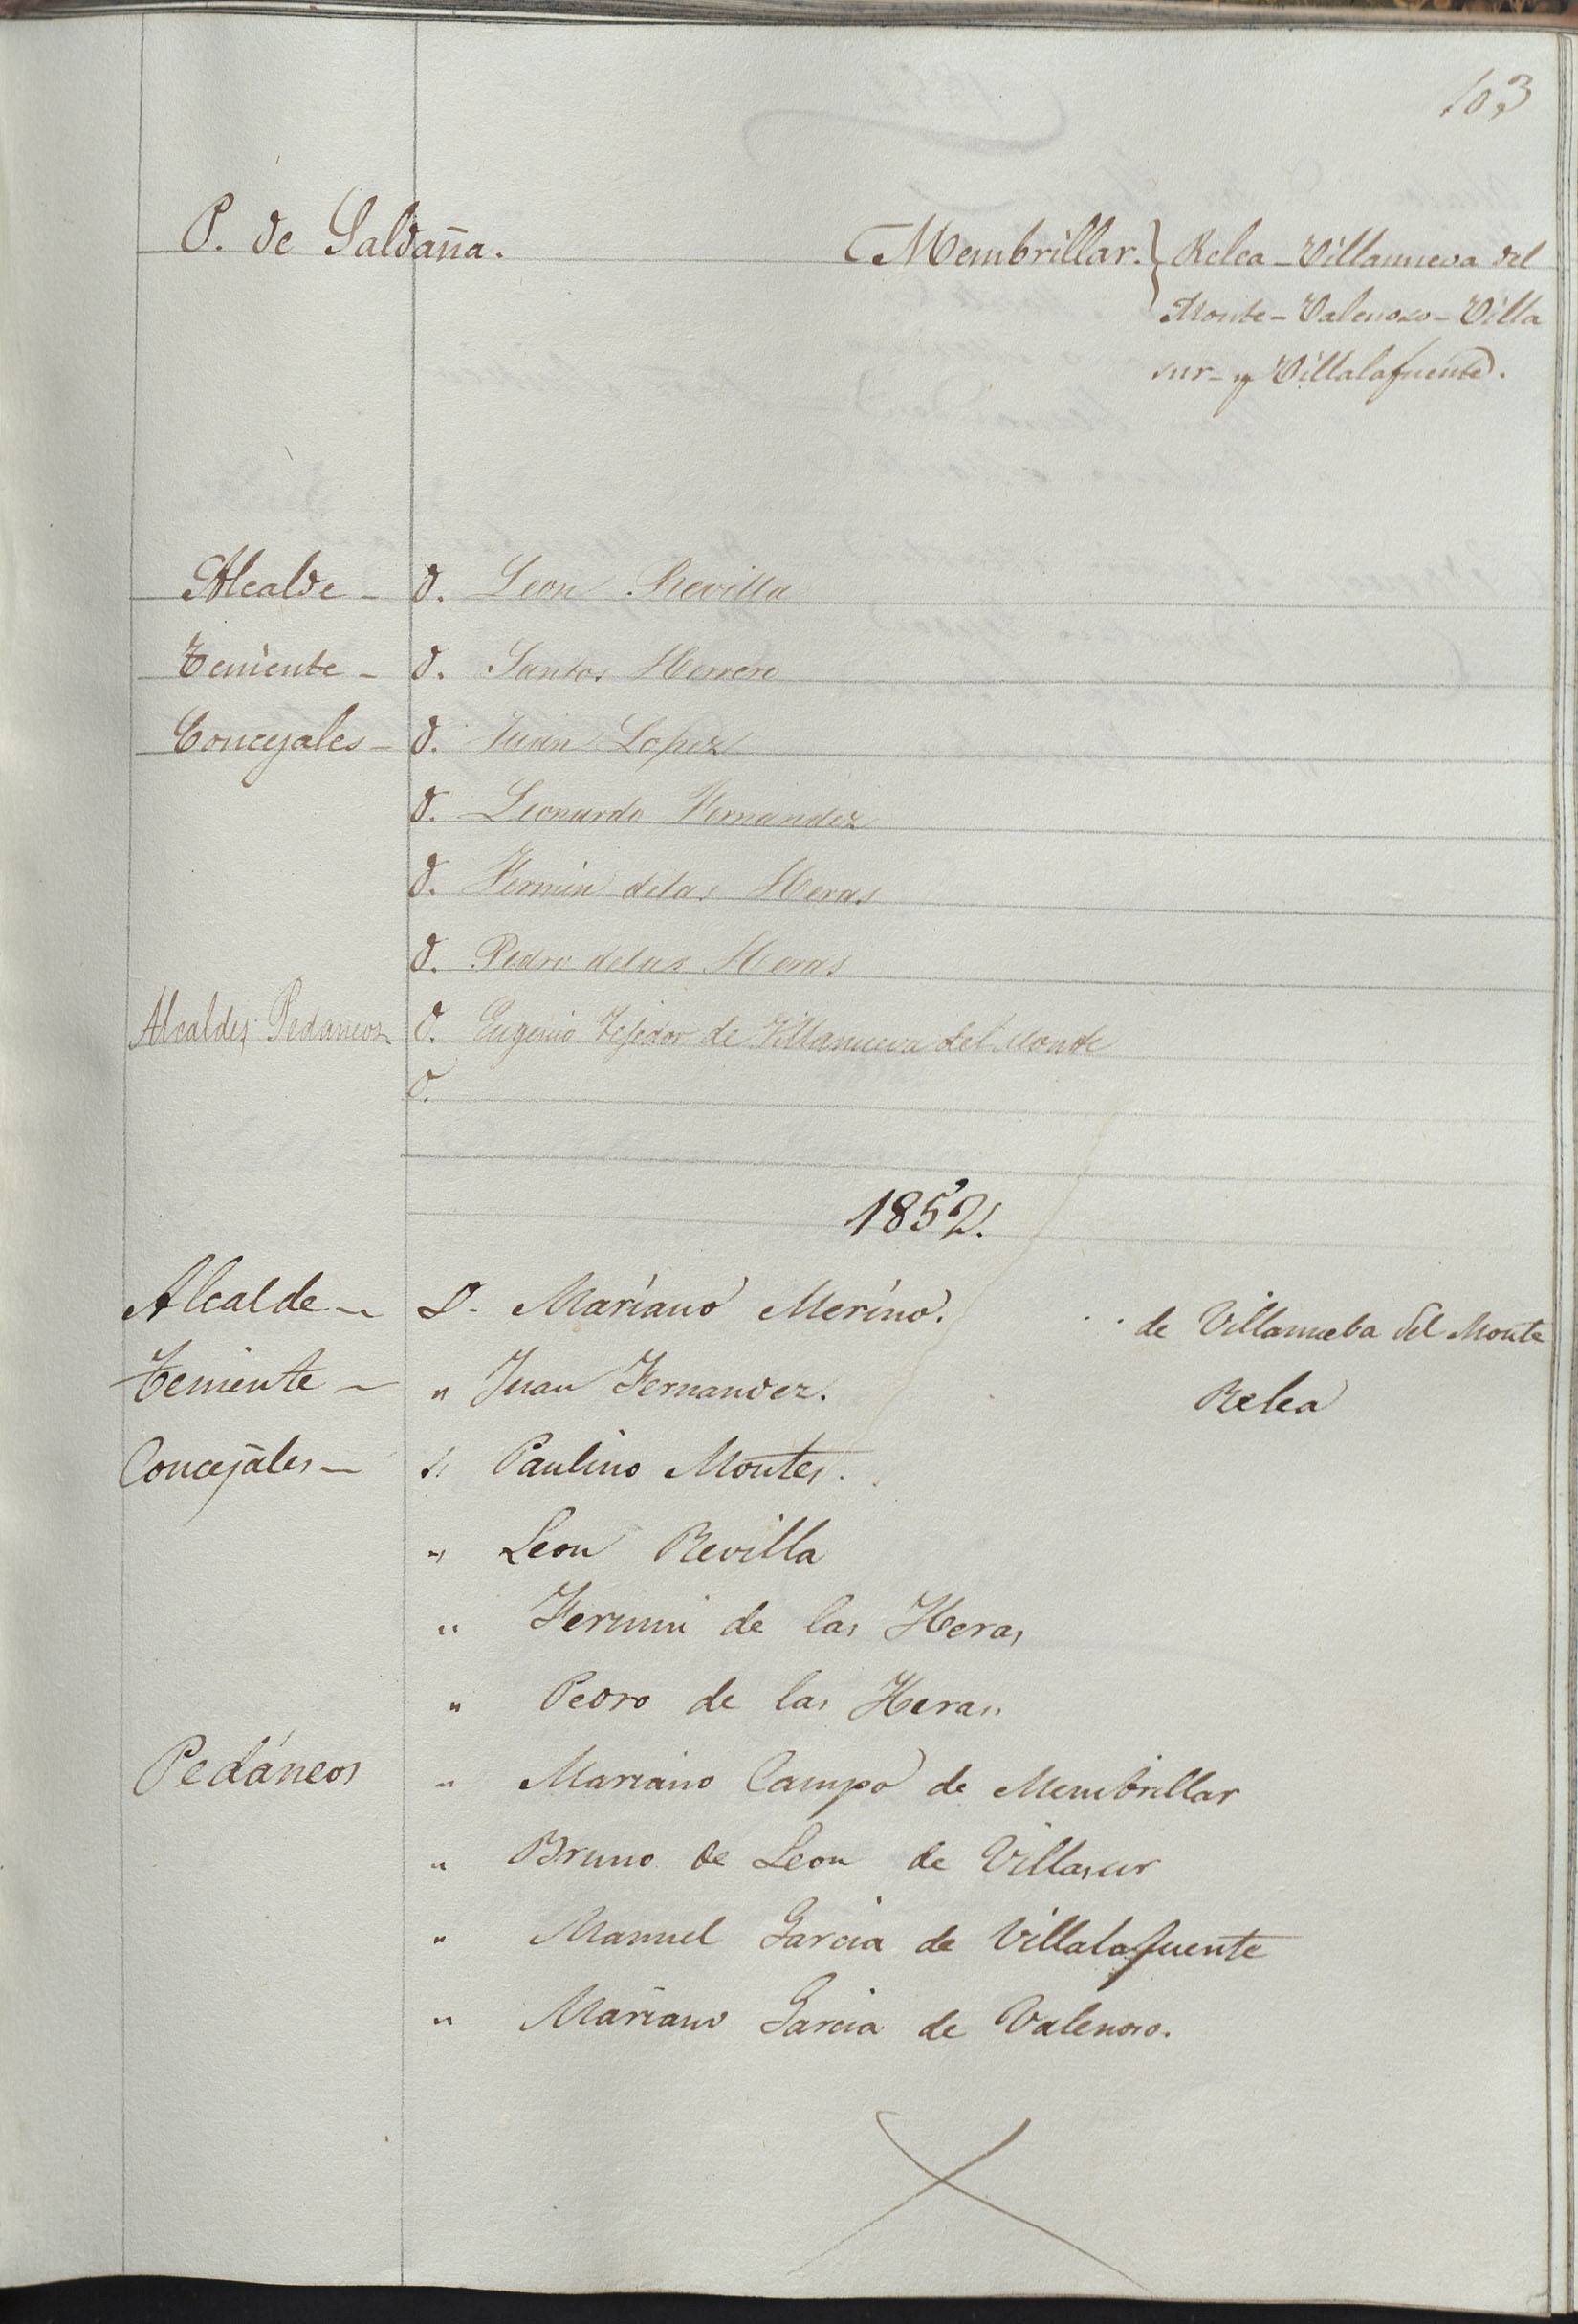 103
P. de Saldaña. Membrillar. } Relea - Villanueva del
Monte - Valenoso - Villa
sur - y Villalafuente.
Alcalde - D. Leon Revilla
Teniente - D. Santos Herrero
Concejales - D. Juan Lopez
D. Leonardo Fernandez
D. Fermin delas Heras
D. Pedro delas Heras
Alcaldes Pedaneos D. Eugenio Tejedor de Villanueva del Monte
D.
1852.
Alcalde - D. Mariano Merino. de Villanueba del Monte
Teniente - " Juan Fernandez. Relea
Concejales - " Paulino Montes.
" Leon Revilla
" Fermin de las Heras
" Pedro de las Heras
Pedáneos " Mariano Campo de Membrillar
" Bruno de Leon de Villasur
" Manuel Garcia de Villalafuente
" Mariano Garcia de Valenoso.